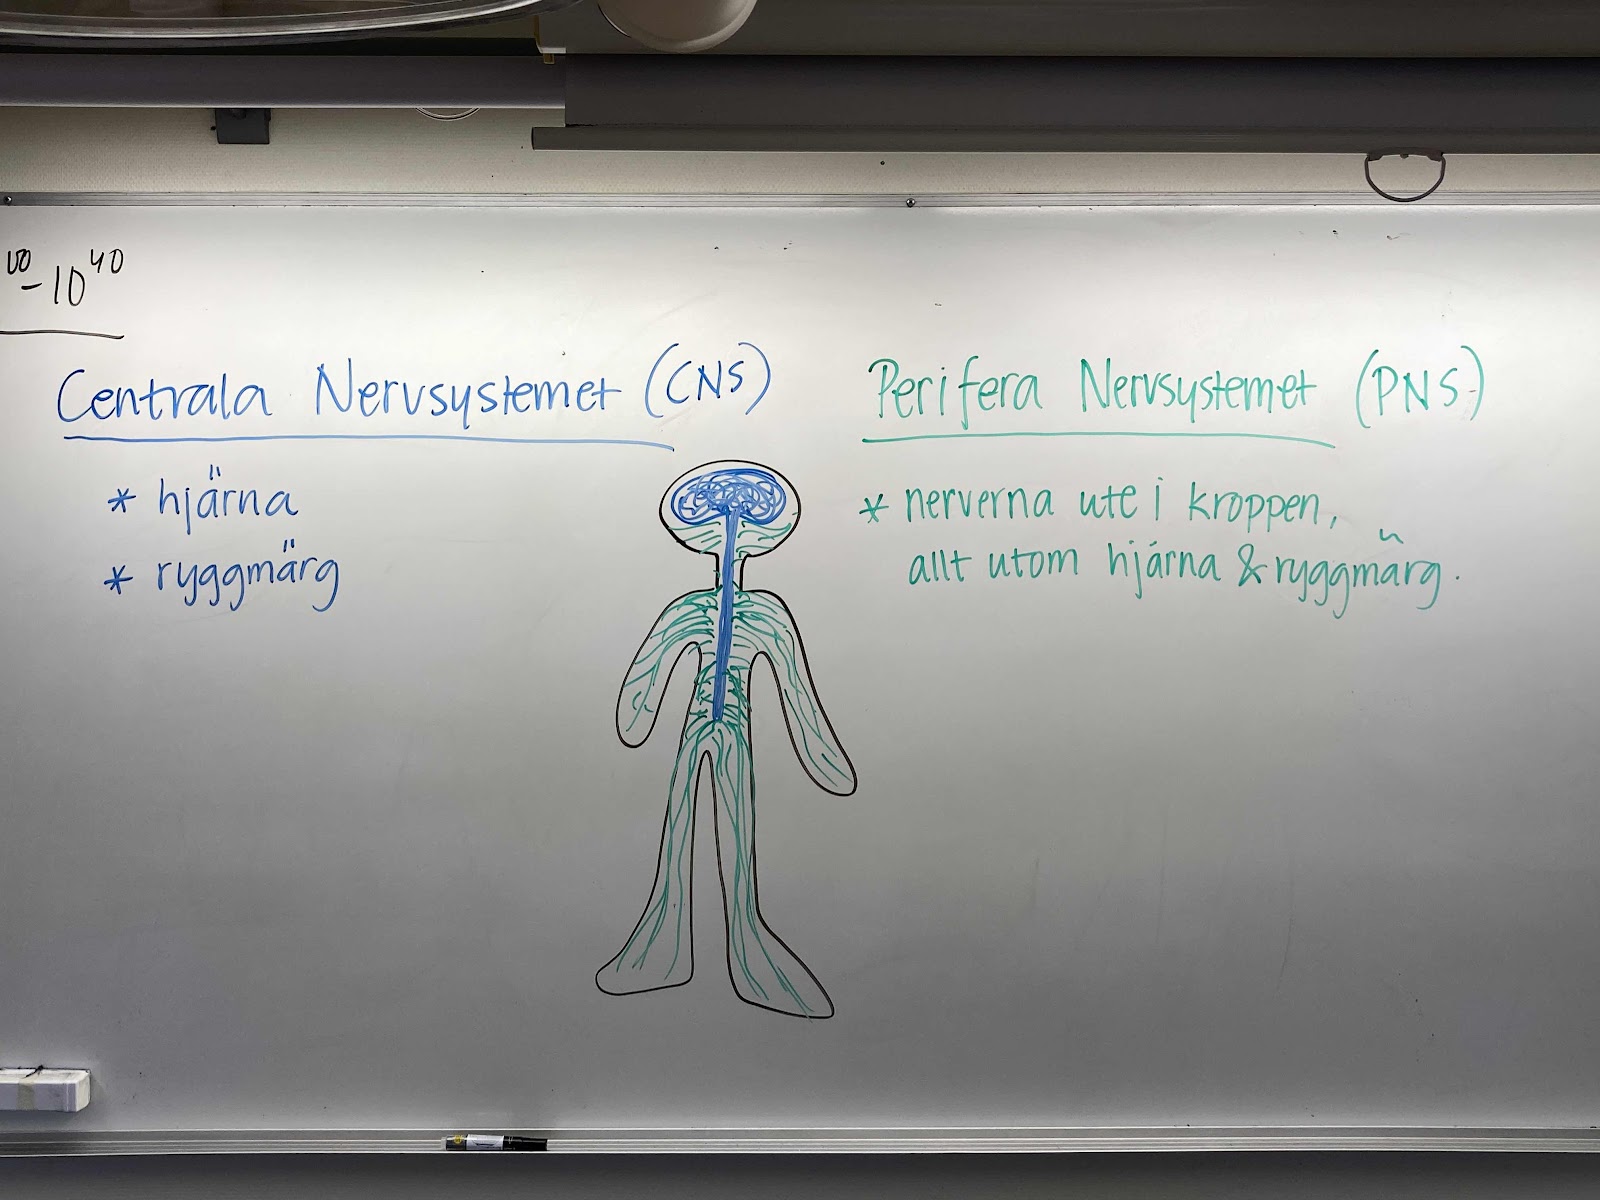 00 - 10 40
Centrala Nervsystemet (CNS)
* hjärna
* ryggmärg
Perifera Nervsystemet (PNS)
* nerverna ute i kroppen,
allt utom hjärna & ryggmärg.